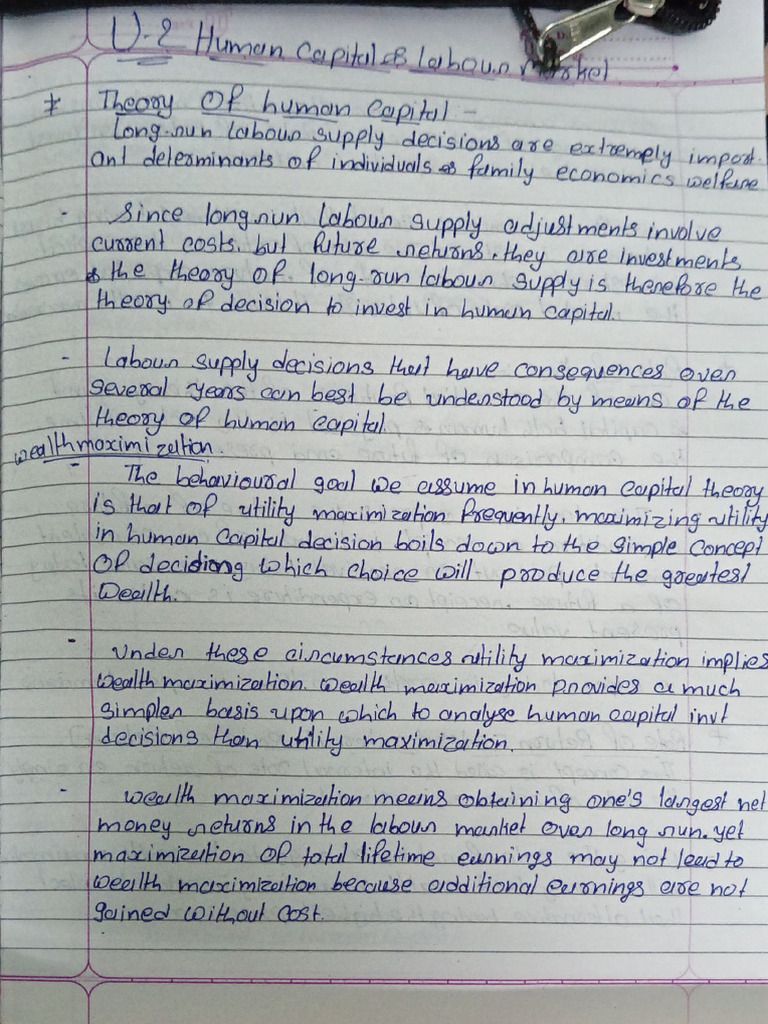 U-2 Human Capital & Labour Market
* Theory Of human Capital -
Long-run labour supply decisions are extremely import-
ant determinants of individuals & family economics welfare
- Since long-run labour supply adjustments involve
current costs but future returns, they are investments
& the theory of long-run labour supply is therefore the
theory of decision to invest in human capital.
- Labour supply decisions that have consequences over
several years can best be understood by means of the
theory of human capital.
wealth maximization
- The behavioural goal we assume in human capital theory
is that of utility maximization frequently, maximizing utility
in human capital decision boils down to the simple concept
of deciding which choice will produce the greatest
wealth.
- Under these circumstances utility maximization implies
wealth maximization. wealth maximization provides a much
simpler basis upon which to analyse human capital invt
decisions than utility maximization.
- Wealth maximization means obtaining one's largest net
money returns in the labour market over long run. yet
maximization of total lifetime earnings may not lead to
wealth maximization because additional earnings are not
gained without cost.